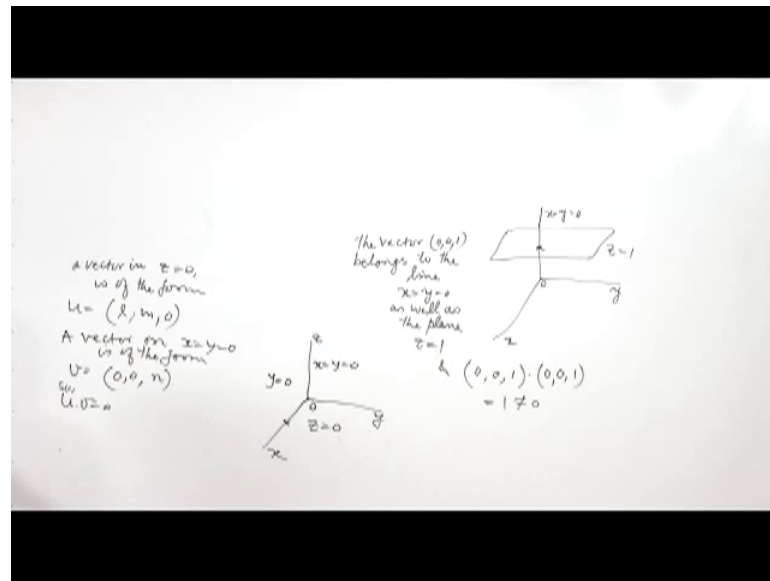 a vector in z=0,
is of the form
u= (l, m, 0)
A vector on x=y=0
is of the form
v= (0, 0, n)
so,
u.v=0
z
x=y=0
y=0
0
y
z=0
x
The vector (0,0,1)
belongs to the
line
x=y=0
as well as
the plane
z=1
& (0, 0, 1) . (0, 0, 1)
= 1 ≠ 0
x=y=0
z=1
0
y
x